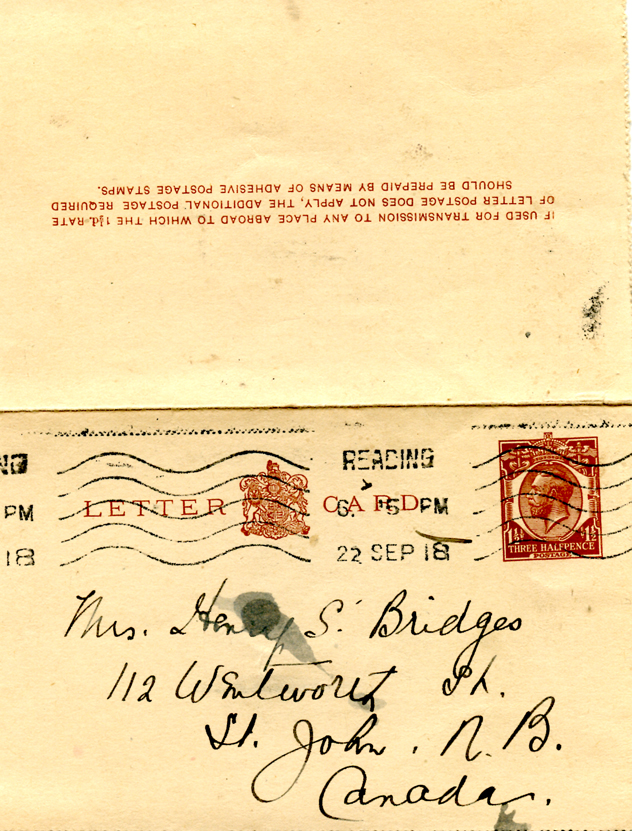 IF USED FOR TRANSMISSION TO ANY PLACE ABROAD TO WHICH THE 1½d. RATE
OF LETTER POSTAGE DOES NOT APPLY, THE ADDITIONAL POSTAGE REQUIRED
SHOULD BE PREPAID BY MEANS OF ADHESIVE POSTAGE STAMPS.
NG
PM
18
LETTER CARD
READING
PM
22 SEP 18
1½ 1½
THREE HALFPENCE
POSTAGE
Mrs. Henry S. Bridges
112 Wentworth St.
St. John, N.B.
Canada.